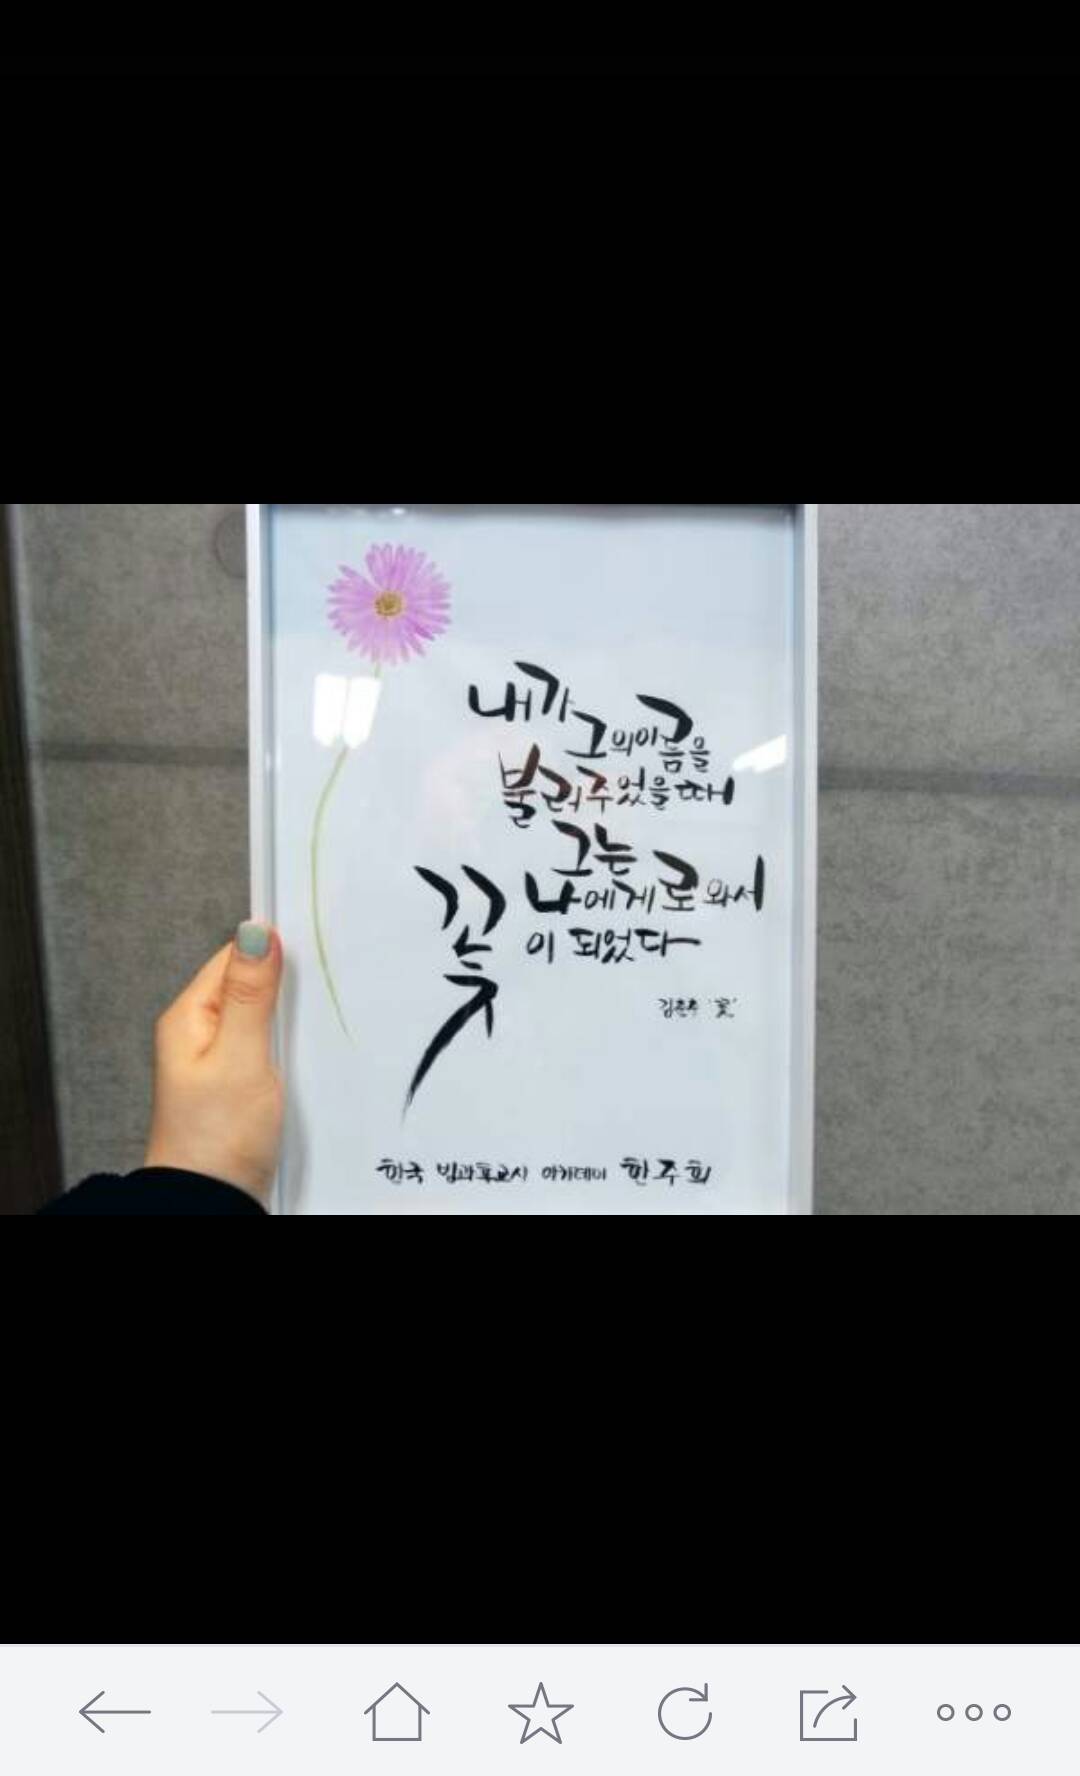 내가
그의이름을
불러주었을때
그는
나에게로 와서
꽃이 되었다
김춘수 '꽃'
한국 방과후교사 아카데미 한주희